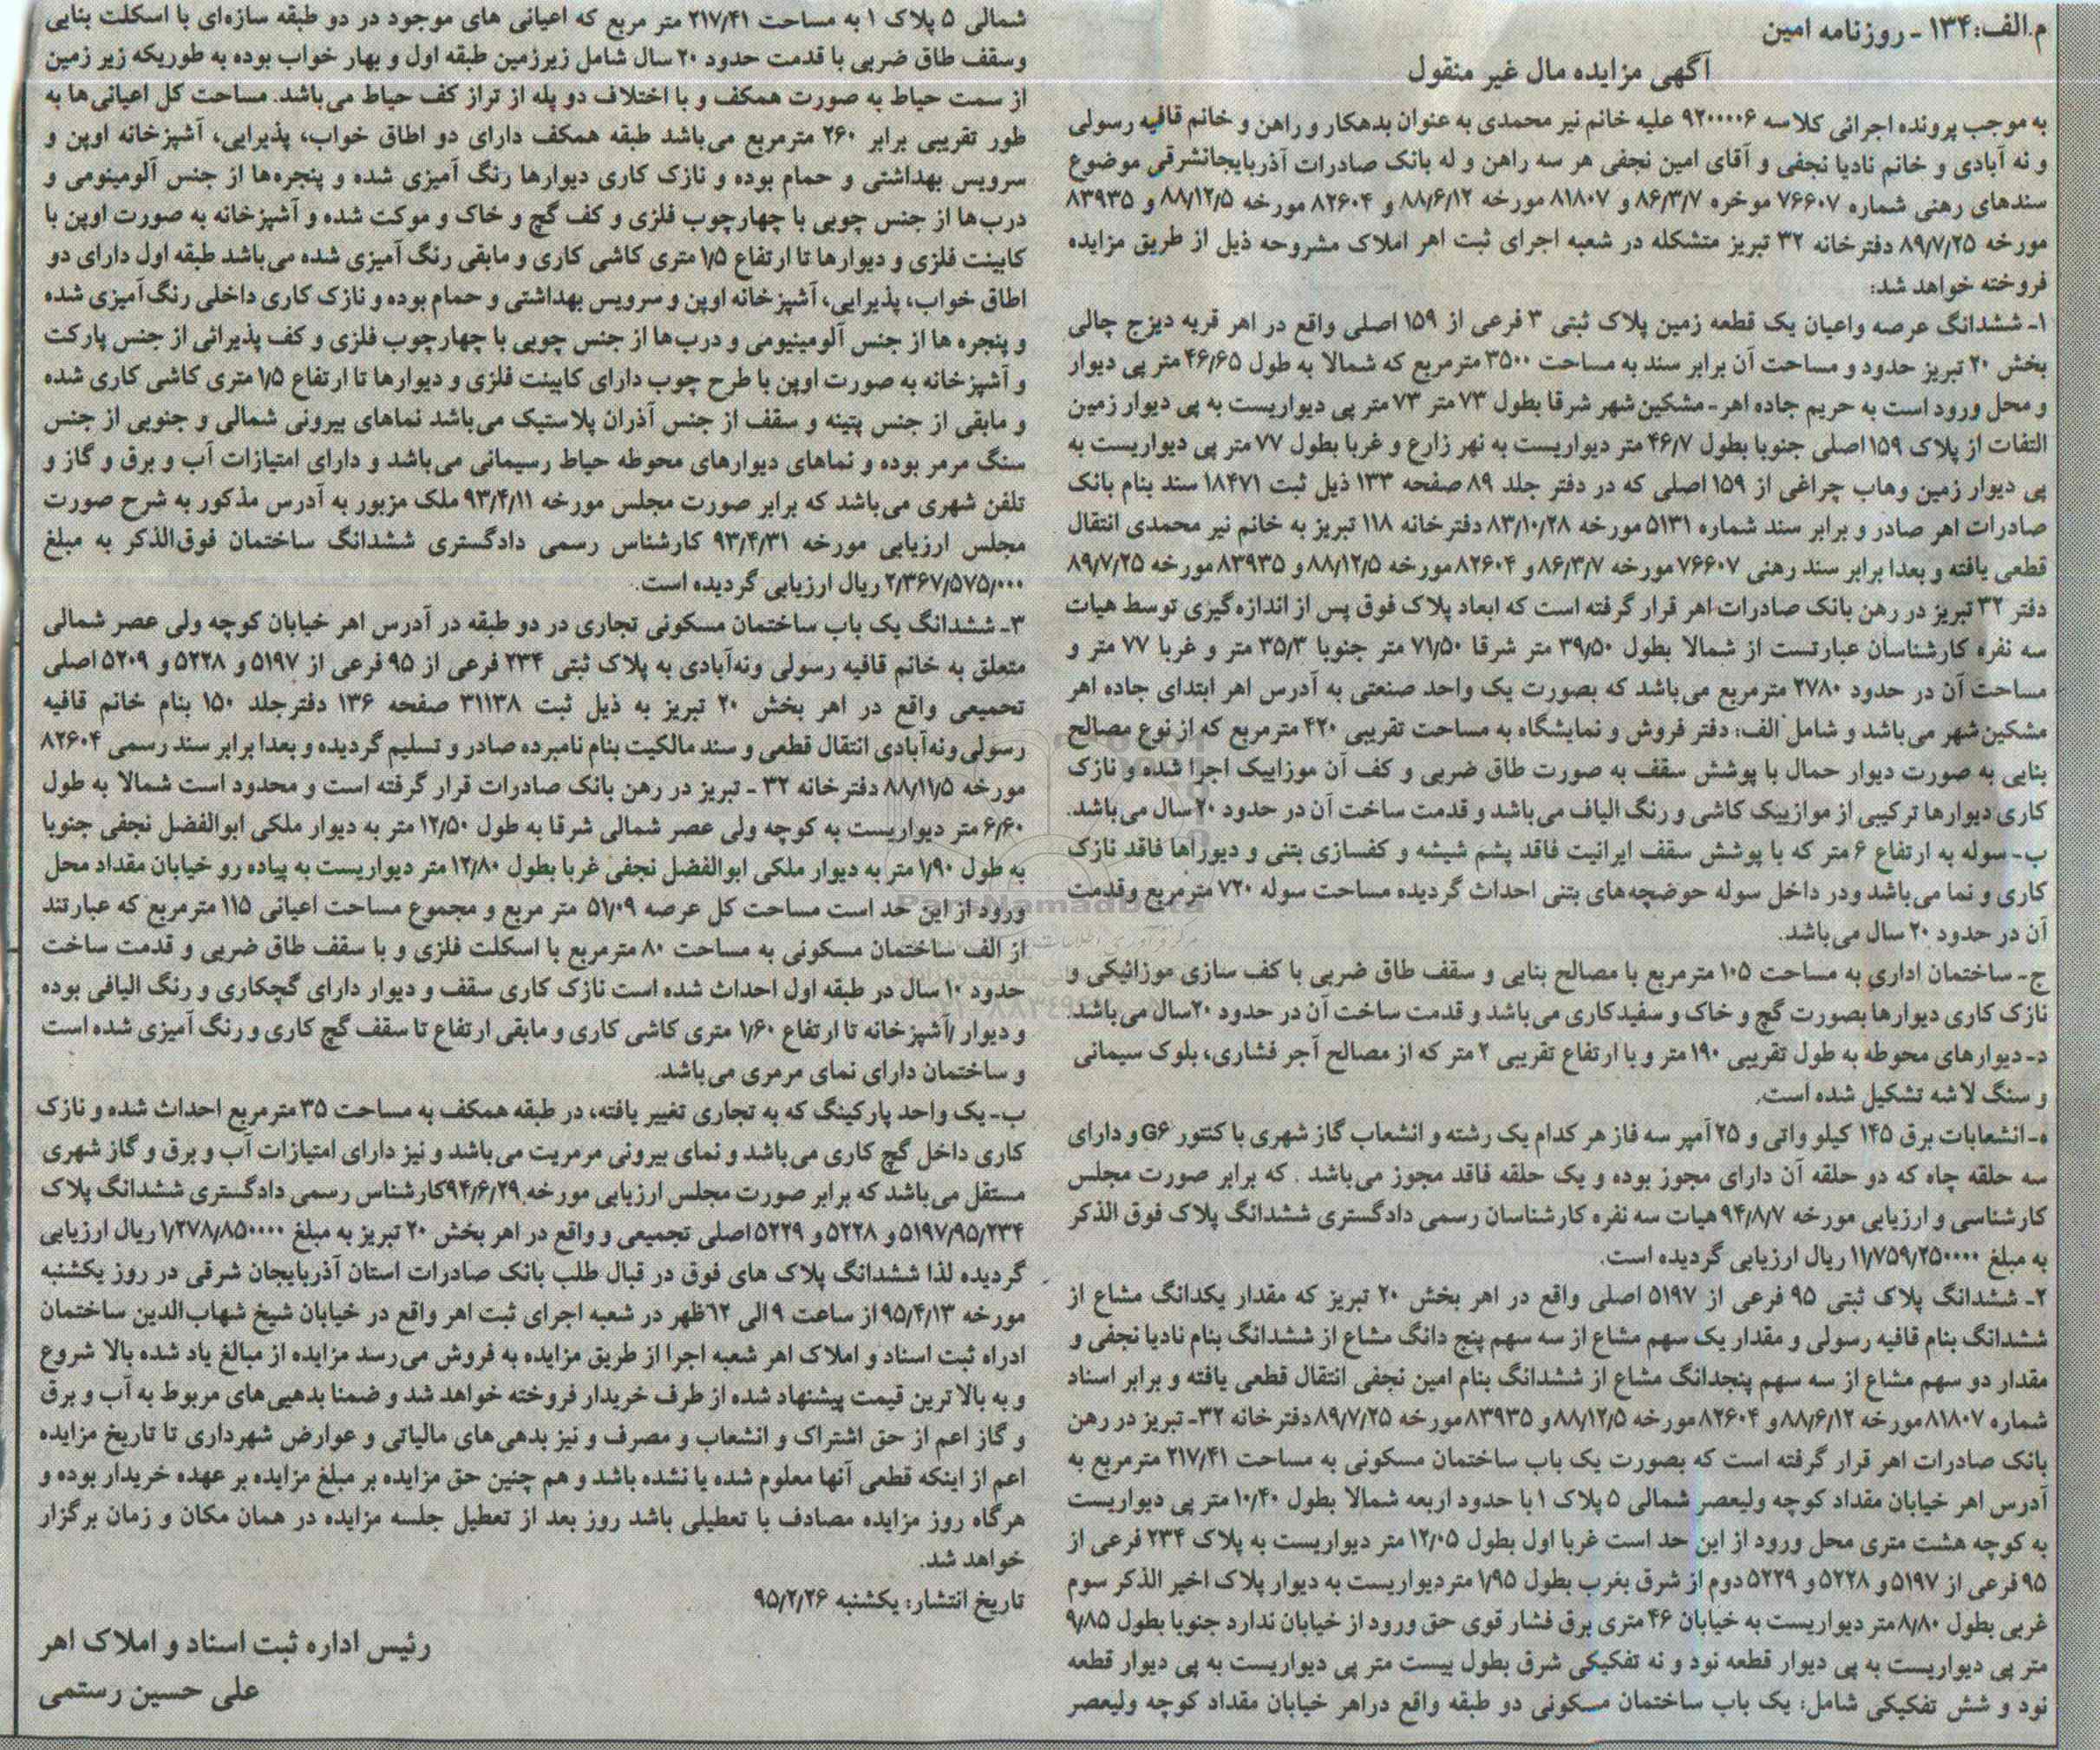 م.الف: ۱۳۴ - روزنامه امین
آگهی مزایده مال غیر منقول
به موجب پرونده اجرائی کلاسه ۹۲۰۰۰۰۶ علیه خانم نیر محمدی به عنوان بدهکار و راهن و خانم قافیه رسولی
و نه آبادی و خانم نادیا نجفی و آقای امین نجفی هر سه راهن و له بانک صادرات آذربایجانشرقی موضوع
سندهای رهنی شماره ۷۶۶۰۷ موخره ۸۶/۳/۷ و ۸۱۸۰۷ مورخه ۸۸/۶/۱۲ و ۸۲۶۰۴ مورخه ۸۸/۱۲/۵ و ۸۳۹۳۵
مورخه ۸۹/۷/۲۵ دفترخانه ۳۲ تبریز متشکله در شعبه اجرای ثبت اهر املاک مشروحه ذیل از طریق مزایده
فروخته خواهد شد:
۱- ششدانگ عرصه واعیان یک قطعه زمین پلاک ثبتی ۳ فرعی از ۱۵۹ اصلی واقع در اهر قریه دیزج چالی
بخش ۲۰ تبریز حدود و مساحت آن برابر سند به مساحت ۳۵۰۰ مترمربع که شمالا به طول ۴۶/۶۵ متر پی دیوار
و محل ورود است به حریم جاده اهر - مشکین شهر شرقا بطول ۷۳ متر ۷۳ متر پی دیواریست به پی دیوار زمین
التفات از پلاک ۱۵۹ اصلی جنوبا بطول ۴۶/۷ متر دیواریست به نهر زارع و غربا بطول ۷۷ متر پی دیواریست به
پی دیوار زمین وهاب چراغی از ۱۵۹ اصلی که در دفتر جلد ۸۹ صفحه ۱۳۳ ذیل ثبت ۱۸۴۷۱ سند بنام بانک
صادرات اهر صادر و برابر سند شماره ۵۱۳۱ مورخه ۸۳/۱۰/۲۸ دفترخانه ۱۱۸ تبریز به خانم نیر محمدی انتقال
قطعی یافته و بعدا برابر سند رهنی ۷۶۶۰۷ مورخه ۸۶/۳/۷ و ۸۲۶۰۴ مورخه ۸۸/۱۲/۵ و ۸۳۹۳۵ مورخه ۸۹/۷/۲۵
دفتر ۳۲ تبریز در رهن بانک صادرات اهر قرار گرفته است که ابعاد پلاک فوق پس از اندازه گیری توسط هیات
سه نفره کارشناسان عبارتست از شمالا بطول ۳۹/۵۰ متر شرقا ۷۱/۵۰ متر جنوبا ۳۵/۳ متر و غربا ۷۷ متر و
مساحت آن در حدود ۲۷۸۰ مترمربع می‌باشد که بصورت یک واحد صنعتی به آدرس اهر ابتدای جاده اهر
مشکین شهر می‌باشد و شامل الف: دفتر فروش و نمایشگاه به مساحت تقریبی ۴۲۰ مترمربع که از نوع مصالح
بنایی به صورت دیوار حمال با پوشش سقف به صورت طاق ضربی و کف آن موزاییک اجرا شده و نازک
کاری دیوارها ترکیبی از موازییک کاشی و رنگ الیاف می‌باشد و قدمت ساخت آن در حدود ۲۰ سال می‌باشد.
ب- سوله به ارتفاع ۶ متر که با پوشش سقف ایرانیت فاقد پشم شیشه و کفسازی بتنی و دیوراها فاقد نازک
کاری و نما می‌باشد ودر داخل سوله حوضچه‌های بتنی احداث گردیده مساحت سوله ۷۲۰ مترمربع وقدمت
آن در حدود ۲۰ سال می‌باشد.
ج- ساختمان اداری به مساحت ۱۰۵ مترمربع با مصالح بنایی و سقف طاق ضربی با کف سازی موزائیکی و
نازک کاری دیوارها بصورت گچ و خاک و سفیدکاری می‌باشد و قدمت ساخت آن در حدود ۲۰سال می‌باشد.
د- دیوارهای محوطه به طول تقریبی ۱۹۰ متر و با ارتفاع تقریبی ۲ متر که از مصالح آجر فشاری، بلوک سیمانی
و سنگ لاشه تشکیل شده است.
ه- انشعابات برق ۱۴۵ کیلو واتی و ۲۵ آمپر سه فاز هر کدام یک رشته و انشعاب گاز شهری با کنتور G۶ و دارای
سه حلقه چاه که دو حلقه آن دارای مجوز بوده و یک حلقه فاقد مجوز می‌باشد . که برابر صورت مجلس
کارشناسی و ارزیابی مورخه ۹۴/۸/۷ هیات سه نفره کارشناسان رسمی دادگستری ششدانگ پلاک فوق الذکر
به مبلغ ۱۱/۷۵۹/۲۵۰۰۰۰ ریال ارزیابی گردیده است.
۲- ششدانگ پلاک ثبتی ۹۵ فرعی از ۵۱۹۷ اصلی واقع در اهر بخش ۲۰ تبریز که مقدار یکدانگ مشاع از
ششدانگ بنام قافیه رسولی و مقدار یک سهم مشاع از سه سهم پنج دانگ مشاع از ششدانگ بنام نادیا نجفی و
مقدار دو سهم مشاع از سه سهم پنجدانگ مشاع از ششدانگ بنام امین نجفی انتقال قطعی یافته و برابر اسناد
شماره ۸۱۸۰۷ مورخه ۸۸/۶/۱۲ و ۸۲۶۰۴ مورخه ۸۸/۱۲/۵ و ۸۳۹۳۵ مورخه ۸۹/۷/۲۵ دفتر خانه ۳۲- تبریز در رهن
بانک صادرات اهر قرار گرفته است که بصورت یک باب ساختمان مسکونی به مساحت ۲۱۷/۴۱ مترمربع به
آدرس اهر خیابان مقداد کوچه ولیعصر شمالی ۵ پلاک ۱ با حدود اربعه شمالا بطول ۱۰/۴۰ متر پی دیواریست
به کوچه هشت متری محل ورود از این حد است غربا اول بطول ۱۲/۰۵ متر دیواریست به پلاک ۲۳۴ فرعی از
۹۵ فرعی از ۵۱۹۷ و ۵۲۲۸ و ۵۲۲۹ دوم از شرق بغرب بطول ۱/۹۵ متر دیواریست به دیوار پلاک اخیر الذکر سوم
غربی بطول ۸/۸۰ متر دیواریست به خیابان ۴۶ متری برق فشار قوی حق ورود از خیابان ندارد جنوبا بطول ۹/۸۵
متر پی دیواریست به پی دیوار قطعه نود و نه تفکیکی شرق بطول بیست متر پی دیواریست به پی دیوار قطعه
نود و شش تفکیکی شامل: یک باب ساختمان مسکونی دو طبقه واقع دراهر خیابان مقداد کوچه ولیعصر
شمالی ۵ پلاک ۱ به مساحت ۲۱۷/۴۱ متر مربع که اعیانی های موجود در دو طبقه سازه‌ای با اسکلت بنایی
وسقف طاق ضربی با قدمت حدود ۲۰ سال شامل زیرزمین طبقه اول و بهار خواب بوده به طوریکه زیر زمین
از سمت حیاط به صورت همکف و با اختلاف دو پله از تراز کف حیاط می‌باشد. مساحت کل اعیانی‌ها به
طور تقریبی برابر ۲۶۰ مترمربع می‌باشد طبقه همکف دارای دو اطاق خواب، پذیرایی، آشپزخانه اوپن و
سرویس بهداشتی و حمام بوده و نازک کاری دیوارها رنگ آمیزی شده و پنجره‌ها از جنس آلومینومی و
درب‌ها از جنس چوبی با چهارچوب فلزی و کف گچ و خاک و موکت شده و آشپزخانه به صورت اوپن با
کابینت فلزی و دیوارها تا ارتفاع ۱/۵ متری کاشی کاری و مابقی رنگ آمیزی شده می‌باشد طبقه اول دارای دو
اطاق خواب، پذیرایی، آشپزخانه اوپن و سرویس بهداشتی و حمام بوده و نازک کاری داخلی رنگ آمیزی شده
و پنجره ها از جنس آلومینیومی و درب‌ها از جنس چوبی با چهارچوب فلزی و کف پذیرائی از جنس پارکت
و آشپزخانه به صورت اوپن با طرح چوب دارای کابینت فلزی و دیوارها تا ارتفاع ۱/۵ متری کاشی کاری شده
و مابقی از جنس پتینه و سقف از جنس آذران پلاستیک می‌باشد نماهای بیرونی شمالی و جنوبی از جنس
سنگ مرمر بوده و نماهای دیوارهای محوطه حیاط رسیمانی می‌باشد و دارای امتیازات آب و برق و گاز و
تلفن شهری می‌باشد که برابر صورت مجلس مورخه ۹۳/۴/۱۱ ملک مزبور به آدرس مذکور به شرح صورت
مجلس ارزیابی مورخه ۹۳/۴/۳۱ کارشناس رسمی دادگستری ششدانگ ساختمان فوق‌الذکر به مبلغ
۲/۳۶۷/۵۷۵/۰۰۰ ریال ارزیابی گردیده است.
۳- ششدانگ یک باب ساختمان مسکونی تجاری در دو طبقه در آدرس اهر خیابان کوچه ولی عصر شمالی
متعلق به خانم قافیه رسولی ونه‌آبادی به پلاک ثبتی ۲۳۴ فرعی از ۹۵ فرعی از ۵۱۹۷ و ۵۲۲۸ و ۵۲۰۹ اصلی
تحمیعی واقع در اهر بخش ۲۰ تبریز به ذیل ثبت ۳۱۱۳۸ صفحه ۱۳۶ دفترجلد ۱۵۰ بنام خانم قافیه
رسولی ونه‌آبادی انتقال قطعی و سند مالکیت بنام نامبرده صادر و تسلیم گردیده و بعدا برابر سند رسمی ۸۲۶۰۴
مورخه ۸۸/۱۱/۵ دفترخانه ۳۲ - تبریز در رهن بانک صادرات قرار گرفته است و محدود است شمالا به طول
۶/۶۰ متر دیواریست به کوچه ولی عصر شمالی شرقا به طول ۱۲/۵۰ متر به دیوار ملکی ابوالفضل نجفی جنوبا
به طول ۱/۹۰ متر به دیوار ملکی ابوالفضل نجفی غربا بطول ۱۲/۸۰ متر دیواریست به پیاده رو خیابان مقداد محل
ورود از این حد است مساحت کل عرصه ۵۱/۰۹ متر مربع و مجموع مساحت اعیانی ۱۱۵ مترمربع که عبارتند
از الف ساختمان مسکونی به مساحت ۸۰ مترمربع با اسکلت فلزی و با سقف طاق ضربی و قدمت ساخت
حدود ۱۰ سال در طبقه اول احداث شده است نازک کاری سقف و دیوار دارای گچکاری و رنگ الیافی بوده
و دیوار آشپزخانه تا ارتفاع ۱/۶۰ متری کاشی کاری و مابقی ارتفاع تا سقف گچ کاری و رنگ آمیزی شده است
و ساختمان دارای نمای مرمری می‌باشد.
ب- یک واحد پارکینگ که به تجاری تغییر یافته، در طبقه همکف به مساحت ۳۵ مترمربع احداث شده و نازک
کاری داخل گچ کاری می‌باشد و نمای بیرونی مرمریت می‌باشد و نیز دارای امتیازات آب و برق و گاز شهری
مستقل می‌باشد که برابر صورت مجلس ارزیابی مورخه ۹۴/۶/۲۹ کارشناس رسمی دادگستری ششدانگ پلاک
۵۱۹۷/۹۵/۲۳۴ و ۵۲۲۸ و ۵۲۲۹ اصلی تجمیعی و واقع در اهر بخش ۲۰ تبریز به مبلغ ۱/۲۷۸/۸۵۰۰۰۰ ریال ارزیابی
گردیده لذا ششدانگ پلاک های فوق در قبال طلب بانک صادرات استان آذربایجان شرقی در روز یکشنبه
مورخه ۹۵/۴/۱۳ از ساعت ۹ الی ۱۲ ظهر در شعبه اجرای ثبت اهر واقع در خیابان شیخ شهاب‌الدین ساختمان
ادراه ثبت اسناد و املاک اهر شعبه اجرا از طریق مزایده به فروش می‌رسد مزایده از مبالغ یاد شده بالا شروع
و به بالاترین قیمت پیشنهاد شده از طرف خریدار فروخته خواهد شد و ضمنا بدهیی‌های مربوط به آب و برق
و گاز اعم از حق اشتراک و انشعاب و مصرف و نیز بدهی‌های مالیاتی و عوارض شهرداری تا تاریخ مزایده
اعم از اینکه قطعی آنها معلوم شده یا نشده باشد و هم چنین حق مزایده بر مبلغ مزایده بر عهده خریدار بوده و
هرگاه روز مزایده مصادف با تعطیلی باشد روز بعد از تعطیل جلسه مزایده در همان مکان و زمان برگزار
خواهد شد.
تاریخ انتشار: یکشنبه ۹۵/۲/۲۶
رئیس اداره ثبت اسناد و املاک اهر
علی حسین رستمی